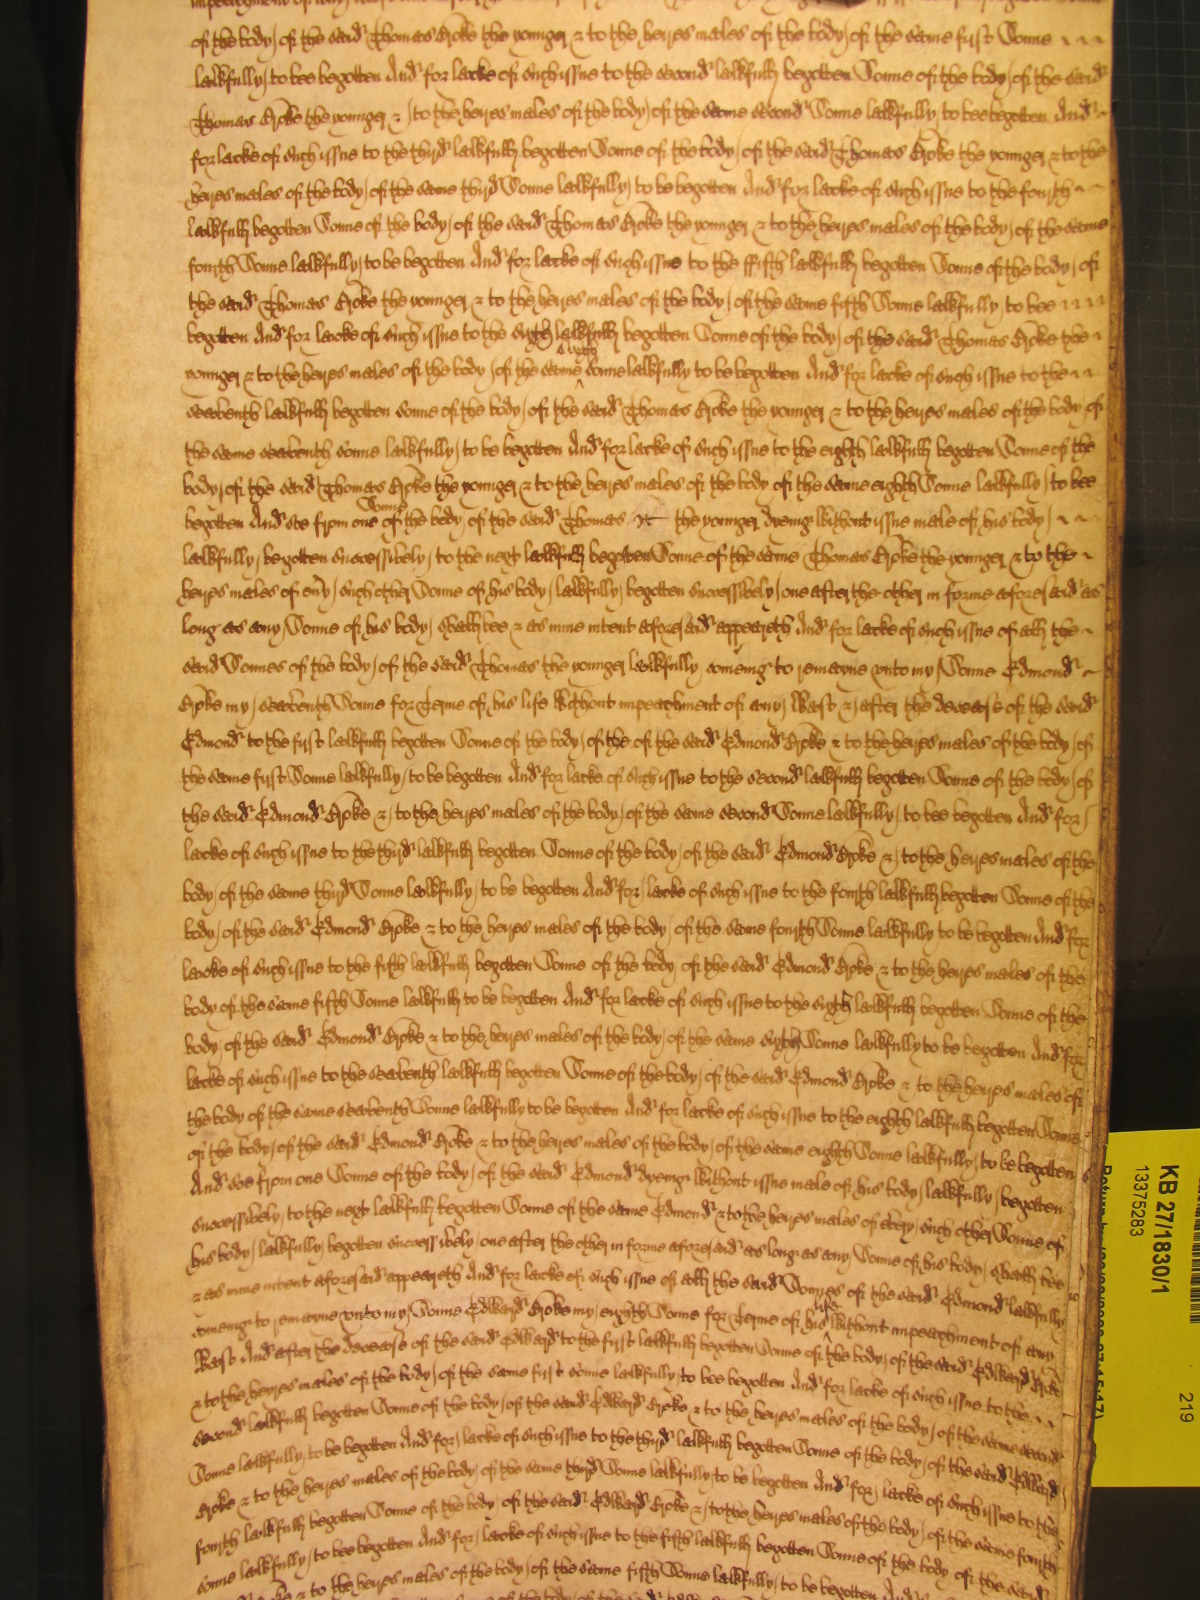 of the body of the said Thomas Roke the younger & to the heyres males of the body of the same first Sonne
lawfully to bee begotten And for lacke of such issue to the second lawfully begotten Sonne of the body of the said
Thomas Roke the younger & to the heyres males of the body of the same second Sonne lawfully to bee begotten And
for lacke of such issue to the third lawfully begotten Sonne of the body of the said Thomas Roke the younger & to the
heyres males of the body of the same third Sonne lawfully to be begotten And for lacke of such issue to the fourth
lawfully begotten Sonne of the body of the said Thomas Roke the younger & to the heyres males of the body of the same
fourth Sonne lawfully to be begotten And for lacke of such issue to the ffifth lawfully begotten Sonne of the body of
the said Thomas Roke the younger & to the heyres males of the body of the same fifth Sonne lawfully to bee
begotten And for lacke of such issue to the sixth lawfully begotten Sonne of the body of the said Thomas Roke the
younger & to the heyres males of the body of the same sixth sonne lawfully to be begotten And for lacke of such issue to the
seaventh lawfully begotten sonne of the body of the said Thomas Roke the younger & to the heyres males of the body of
the same seaventh sonne lawfully to be begotten And for lacke of such issue to the eighth lawfully begotten Sonne of the
body of the said Thomas Roke the younger & to the heyres males of the body of the same eighth Sonne lawfully to bee
begotten And soe from one Sonne of the body of the said Thomas the younger dyeing without issue male of his body
lawfully begotten successively to the next lawfully begotten Sonne of the same Thomas Roke the younger & to the
heyres males of eny such other Sonne of his body lawfully begotten successively one after the other in forme aforesaid as
long as any Sonne of his body shall bee & as mine intent aforesaid appeareth And for lacke of such issue of all the
said Sonnes of the body of the said Thomas the younger lawfully comeing to remayne unto my Sonne Edmond
Roke my seaventh Sonne for Terme of his life without impeachment of any Wast & after the decease of the said
Edmond to the first lawfully begotten Sonne of the body of the of the said Edmond Roke & to the heyres males of the body of
the same first Sonne lawfully to be begotten And for lacke of such issue to the second lawfully begotten Sonne of the body of
the said Edmond Roke & to the heyres males of the body of the same second Sonne lawfully to bee begotten And for
lacke of such issue to the third lawfully begotten Sonne of the body of the said Edmond Roke & to the heyres males of the
body of the same third Sonne lawfully to be begotten And for lacke of such issue to the fourth lawfully begotten Sonne of the
body of the said Edmond Roke & to the heyres males of the body of the same fourth Sonne lawfully to be begotten And for
lacke of such issue to the fifth lawfully begotten Sonne of the body of the said Edmond Roke & to the heyres males of the
body of the same fifth Sonne lawfully to be begotten And for lacke of such issue to the sixth lawfully begotten Sonne of the
body of the said Edmond Roke & to the heyres males of the body of the same sixth Sonne lawfully to be begotten And for
lacke of such issue to the seaventh lawfully begotten Sonne of the body of the said Edmond Roke & to the heyres males of
the body of the same seaventh Sonne lawfully to be begotten And for lacke of such issue to the eighth lawfully begotten Sonne
of the body of the said Edmond Roke & to the heyres males of the body of the same eighth Sonne lawfully to be begotten
And soe from one Sonne of the body of the said Edmond dyeing without issue male of his body lawfully begotten
successively to the next lawfully begotten Sonne of the same Edmond & to the heyres males of every such other Sonne of
his body lawfully begotten successively one after the other in forme aforesaid as long as any Sonne of his body shall bee
& as mine intent aforesaid appeareth And for lacke of such issue of all the said Sonnes of the said Edmond lawfully
comeing to remayne unto my Sonne Edward Roke my eighth Sonne for Terme of his life without impeachment of any
Wast And after the decease of the said Edward to the first lawfully begotten Sonne of the body of the said Edward Roke
& to the heyres males of the body of the same first sonne lawfully to bee begotten And for lacke of such issue to the
second lawfully begotten Sonne of the body of the said Edward Roke & to the heyres males of the body of the same second
Sonne lawfully to be begotten And for lacke of such issue to the third lawfully begotten Sonne of the body of the said Edward
Roke & to the heyres males of the body of the same third Sonne lawfully to be begotten And for lacke of such issue to the
fourth lawfully begotten Sonne of the body of the said Edward Roke & to the heyres males of the body of the same fourth
sonne lawfully to bee begotten And for lacke of such issue to the fifth lawfully begotten Sonne of the body of the said
& to the heyres males of the body of the same fifth Sonne lawfully to be begotten
KB 27/1830/1
13375283
219